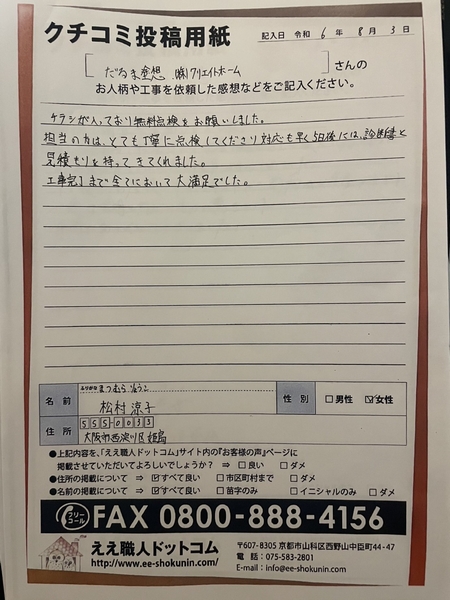 クチコミ投稿用紙
記入日 令和 6 年 8 月 3 日
だるま塗想 ㈱クリエイトホーム さんの
お人柄や工事を依頼した感想などをご記入ください。
チラシが入っており無料点検をお願いしました。
担当の方は、とても丁寧に点検してくださり対応も早く5日後には、診断書と
見積もりを持ってきてくれました。
工事完了まで全てにおいて大満足でした。
ふりがな まつむら りょうこ
名前 松村 涼子 性別 □男性 ☑女性
住所 555-0033
大阪市西淀川区姫島
●上記内容を、「ええ職人ドットコム」サイト内の『お客様の声』ページに
掲載させていただいてよろしいでしょうか? ⇒ □良い □ダメ
●住所の掲載について ⇒ ☑すべて良い □市区町村まで □ダメ
●名前の掲載について ⇒ ☑すべて良い □苗字のみ □イニシャルのみ □ダメ
フリーコール FAX 0800-888-4156
ええ職人ドットコム
http://www.ee-shokunin.com/
〒607-8305 京都市山科区西野山中臣町44-47
電話:075-583-2801
E-mail:info@ee-shokunin.com